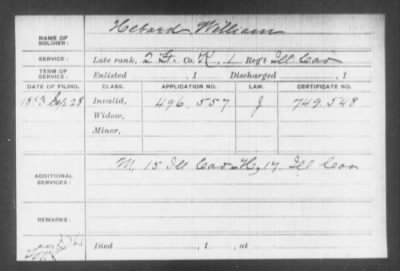 NAME OF SOLDIER: Hebard William
SERVICE: Late rank, 2 Lt. Co. K, 1 Reg't Ill Cav
TERM OF SERVICE: Enlisted , 1 Discharged , 1
DATE OF FILING. CLASS. APPLICATION NO. LAW. CERTIFICATE NO.
1883 Sep. 28 Invalid, 496.557 J 749.548
Widow,
Minor,
ADDITIONAL SERVICES: M, 15 Ill Cav H, 17 Ill Cav
REMARKS:
Died , 1 , at